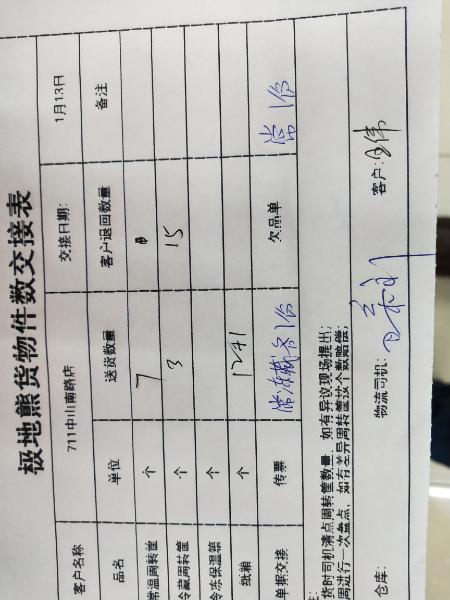 极地熊货物件数交接表
客户名称 711中山南路店 交接日期: 1月13日
品名 单位 送货数量 客户退回数量 备注
常温周转筐 个 7 0
冷藏周转筐 个 3 15
冷冻保温箱 个
纸箱 个 12+1
单据交接 传票 欠品单 常1份
货时司机清点周转筐数量，如有异议现场提出；
周进行一次盘点，如有差异周转筐按个数赔偿；
仓库: 物流司机: 客户: